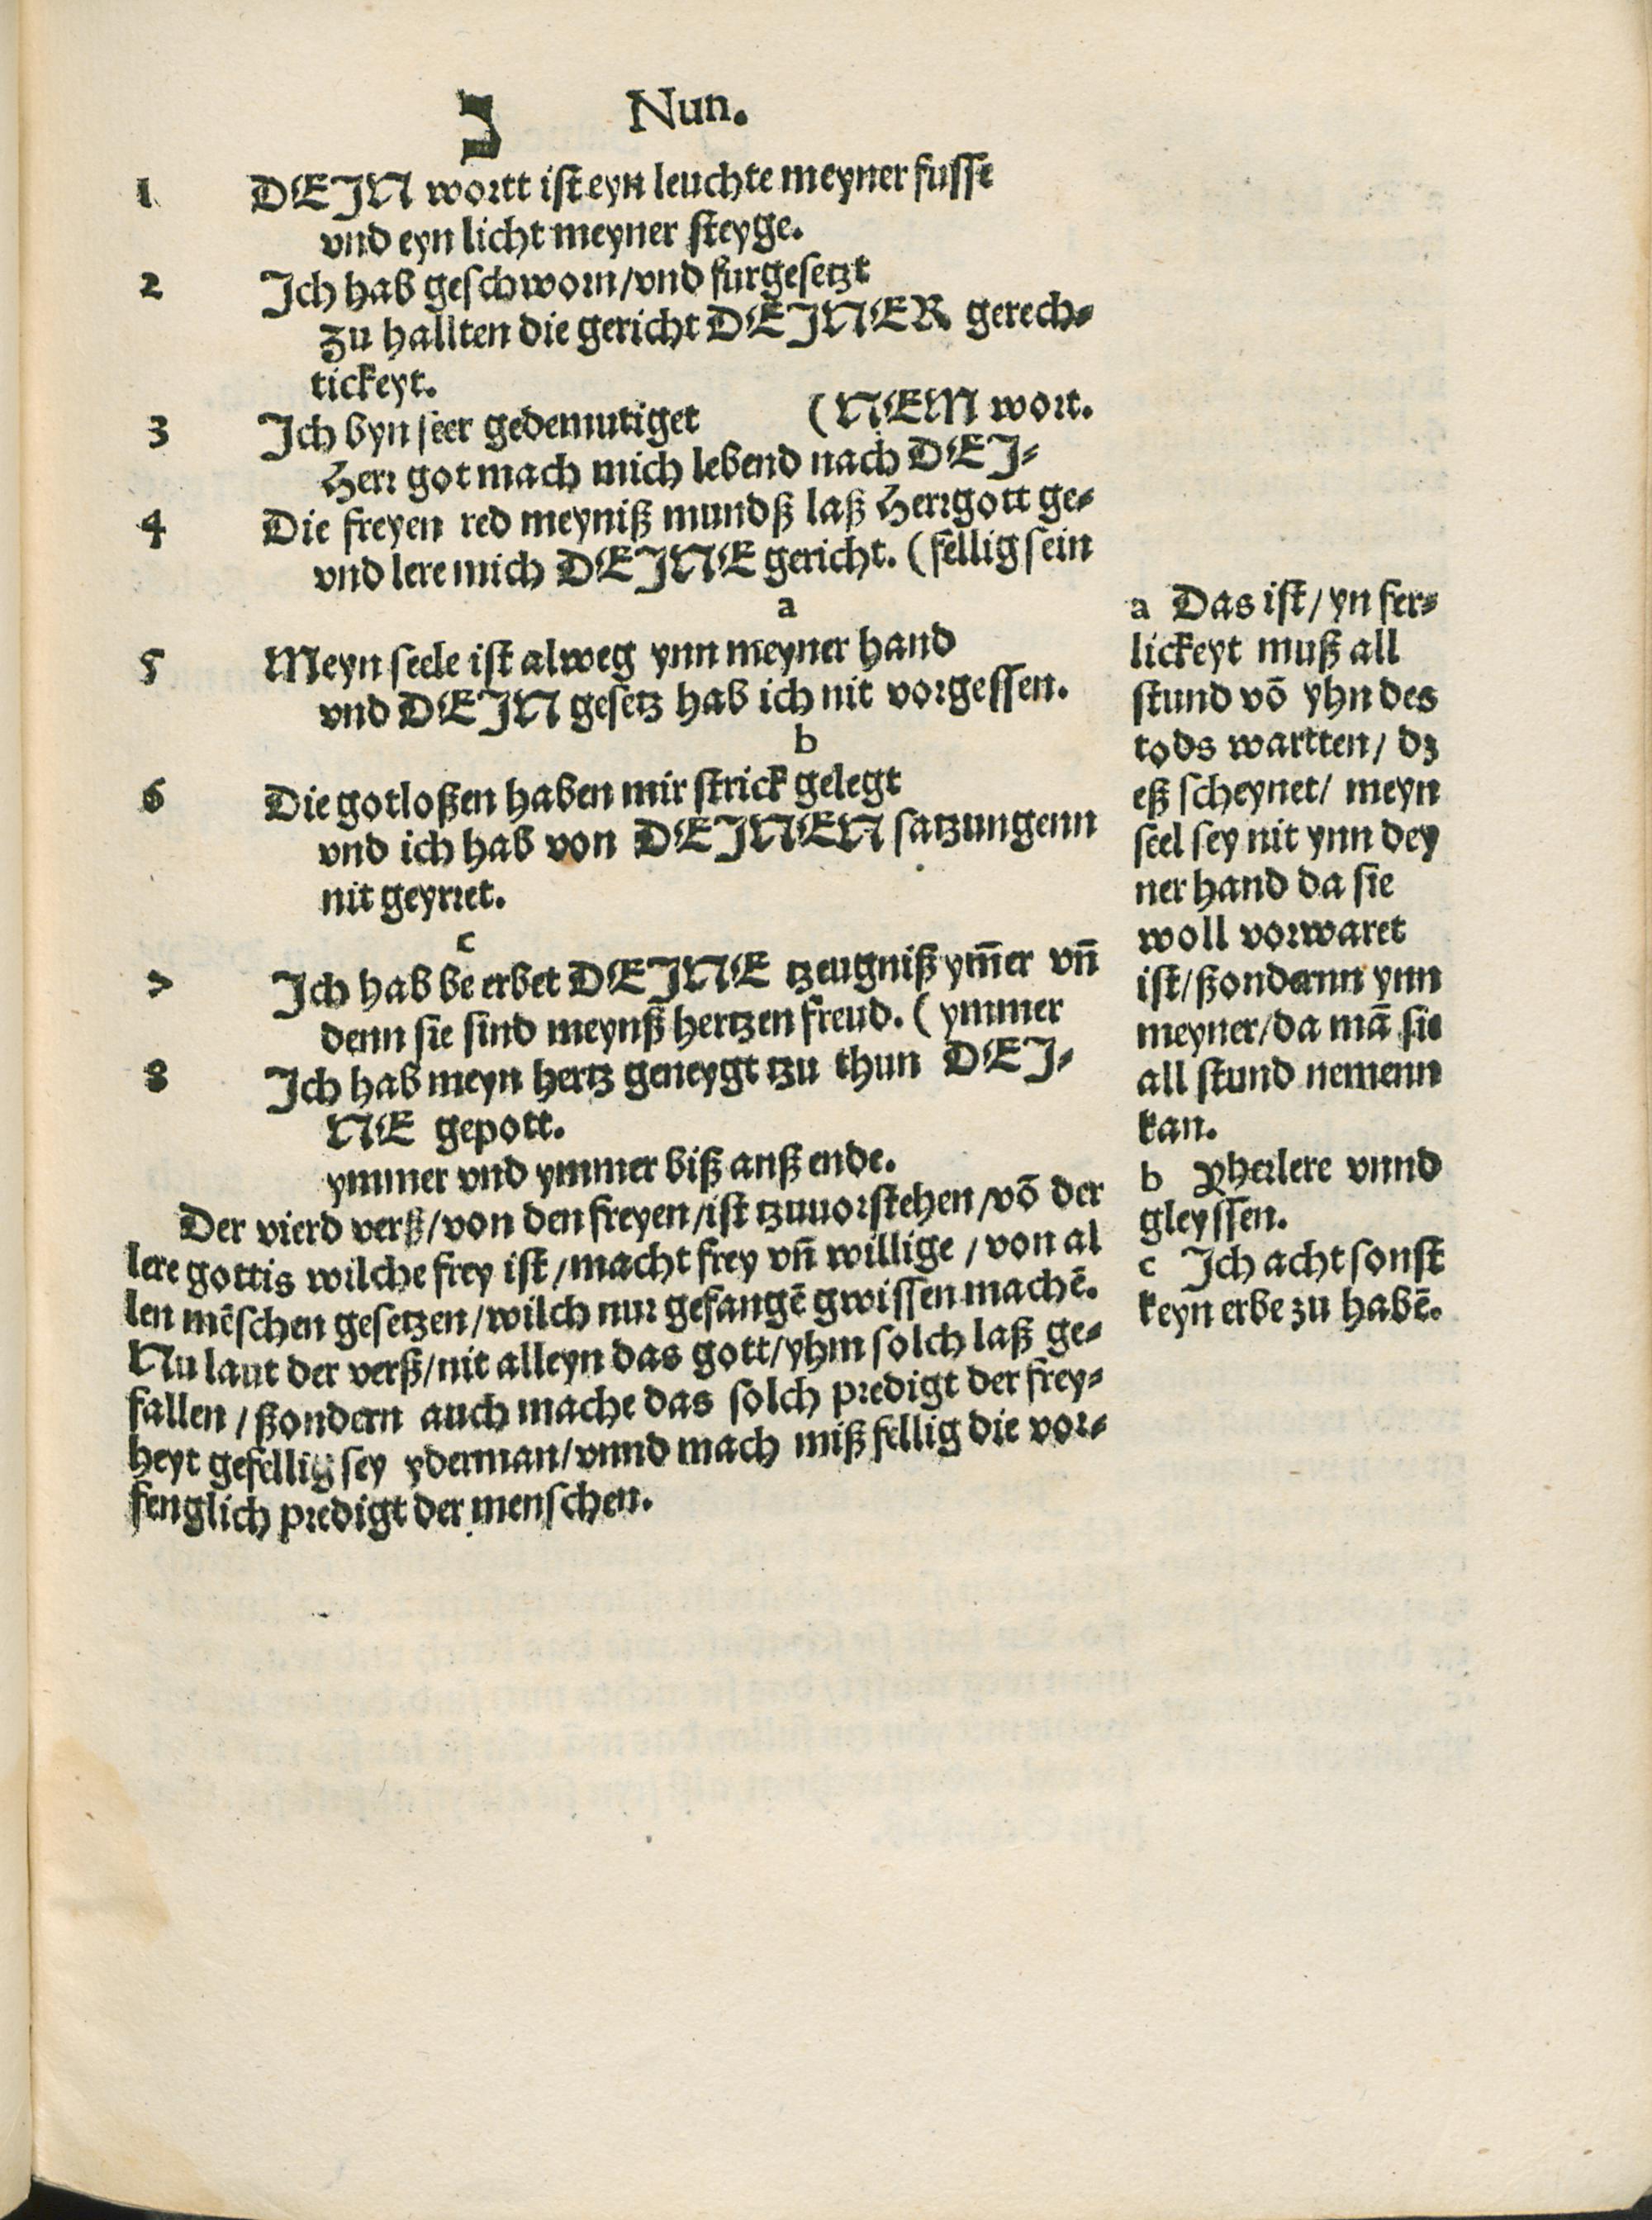 נ Nun.
1 DEJN wortt ist eyn leuchte meyner fusse
vnd eyn licht meyner steyge.
2 Jch hab geschworn/vnd furgesetzt
zu hallten die gericht DEJNER gerech-
tickeyt.
3 Jch byn seer gedemutiget (NEM wort.
Herr got mach mich lebend nach DEJ-
4 Die freyen red meyniß mundß laß Herrgott ge-
vnd lere mich DEJNE gericht. (fellig sein
a
5 Meyn seele ist alweg ynn meyner hand
vnd DEJN gesetz hab ich nit vorgessen.
b
6 Die gotloßen haben mir strick gelegt
vnd ich hab von DEJNEN satzungenn
nit geyrret.
c
7 Jch hab be erbet DEJNE tzeugniß ym̄er vn̄
denn sie sind meynß hertzen freud. (ymmer
8 Jch hab meyn hertz geneygt tzu thun DEJ-
NE gepott.
ymmer vnd ymmer biß anß ende.
Der vierd verß/von den freyen/ist tzuuorstehen/vō der
lere gottis wilche frey ist/macht frey vn̄ willige/von al
len mēschen gesetzen/wilch nur gefangē gwissen machē.
Nu laut der verß/nit alleyn das gott/yhm solch laß ge-
fallen/ßondern auch mache das solch predigt der frey-
heyt gefellig sey yderman/vnnd mach mißfellig die vor-
fenglich predigt der menschen.
a Das ist/yn fer-
lickeyt muß all
stund vō yhn des
tods wartten/dz
eß scheynet/meyn
seel sey nit ynn dey
ner hand da sie
woll vorwaret
ist/ßondernn ynn
meyner/da mā sie
all stund nemenn
kan.
b Yherlere vnnd
gleyssen.
c Jch acht sonst
keyn erbe zu habē.